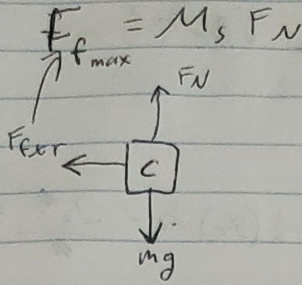 F_f max = M_s F_N
F_N
F_fxr
C
mg